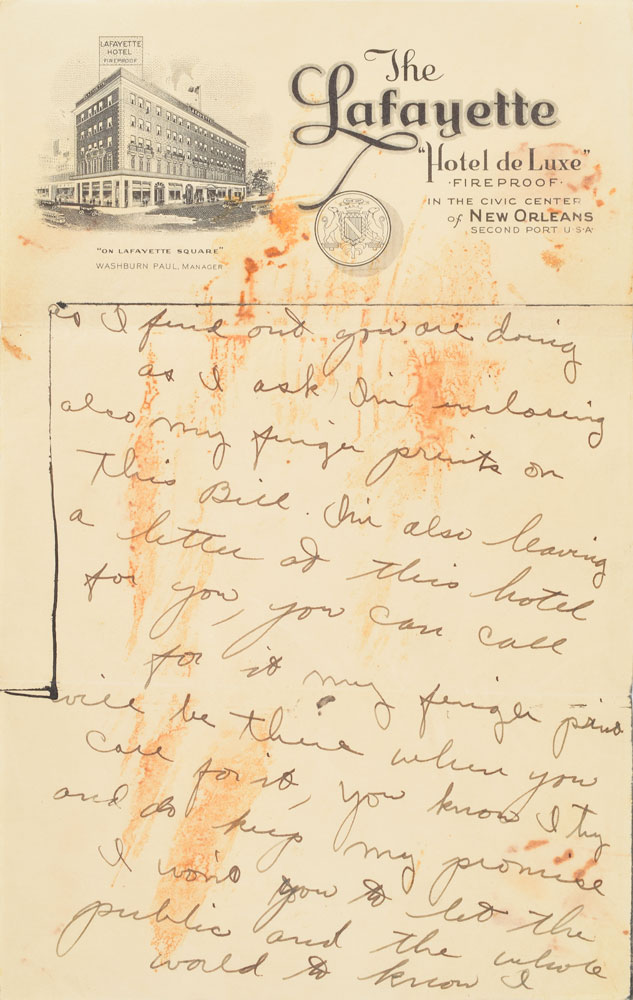 LAFAYETTE
HOTEL
FIREPROOF
The
Lafayette
"Hotel de Luxe"
·FIREPROOF·
IN THE CIVIC CENTER
of NEW ORLEANS
SECOND PORT U·S·A
"ON LAFAYETTE SQUARE"
WASHBURN PAUL, MANAGER
as I find out you are doing
as I ask I'm inclosing
also my finger prints on
This Bill. I'm also leaving
a letter at this hotel
for you, you can call
for it my finger print
will be there when you
care for it, you know I try
and do keep my promise
I want you to let the
public and the whole
world to know I